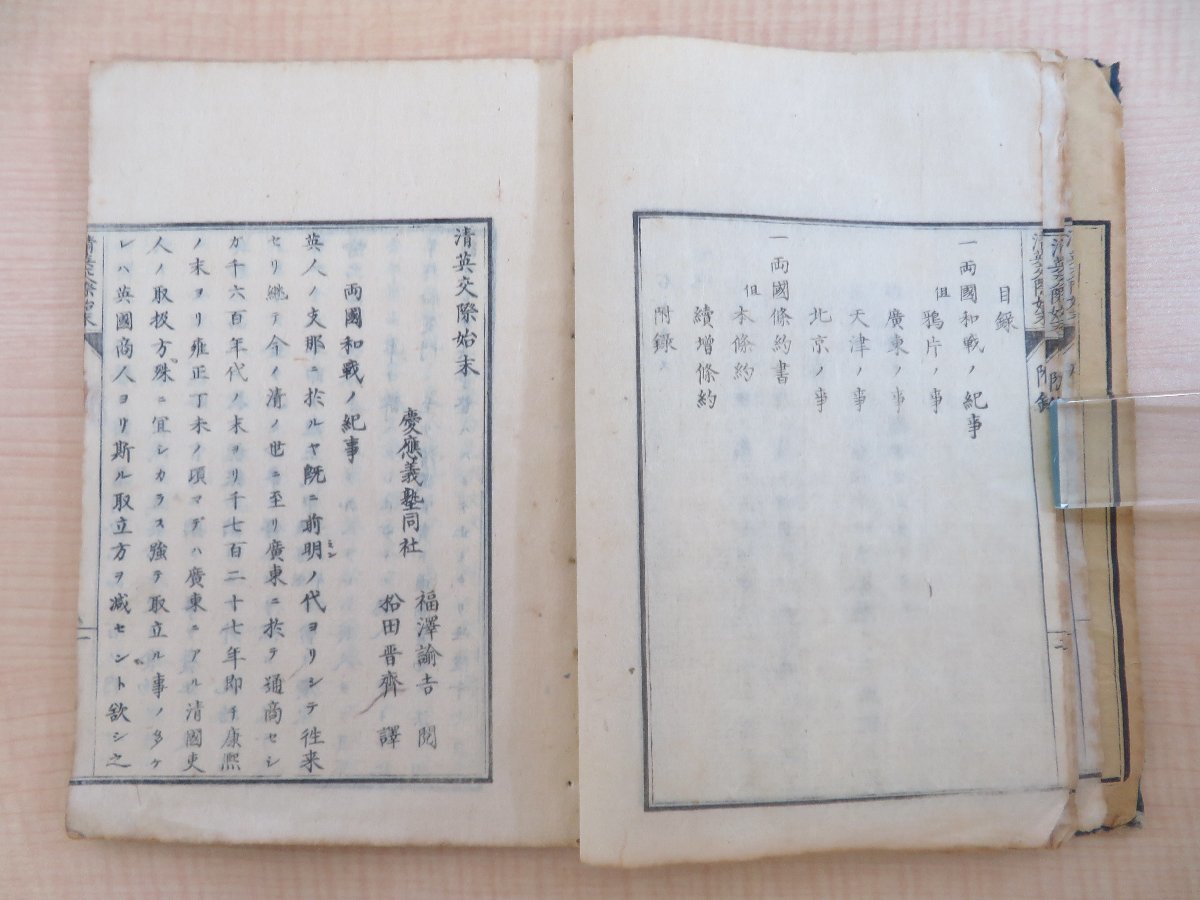 目録
一両國和戦ノ紀事
但鴉片ノ事
廣東ノ事
天津ノ事
北京ノ事
一両國條約書
但本條約
續增條約
附録
清英交際始末
慶應義塾同社
福澤諭吉 閲
松田晋齊 譯
両國和戦ノ紀事
英人ノ支那ニ於ルヤ既ニ前明ノ代ヨリシテ徃来
セリ継テ今ノ清ノ世ニ至リ廣東ニ於テ通商セシ
ガ千六百年代ノ末ヨリ千七百二十七年即チ康熈
ノ末ヨリ雍正丁未ノ頃マデハ廣東ニアル清國吏
人ノ取扱方殊ニ宜シカラス強テ取立ル事ノ多ケ
レハ英國商人ヨリ斯ル取立方ヲ减セント欲シ之